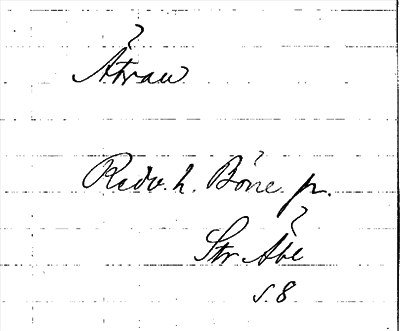 Åtran
Redv. h. Böne p.
Str. Åbe
S. 8